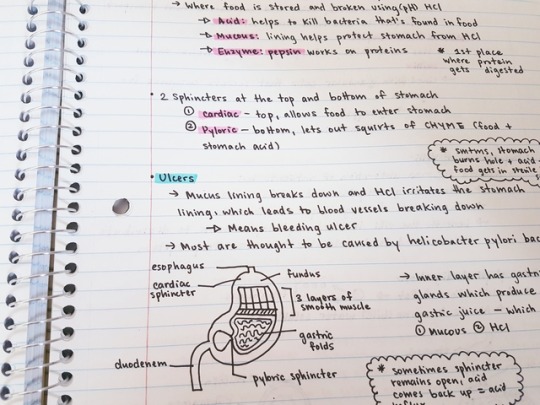 → Where food is stored and broken using (pH) HCl
→ Acid: helps to kill bacteria that's found in food
→ Mucous: lining helps protect stomach from HCl
→ Enzyme: pepsin works on proteins
* 1st place
where protein
gets digested
• 2 Sphincters at the top and bottom of stomach
① cardiac - top, allows food to enter stomach
② Pyloric - bottom, lets out squirts of CHYME (food +
stomach acid)
* smtms, stomach
burns hole + acid +
food gets in sterile
• Ulcers
→ Mucus lining breaks down and HCl irritates the stomach
lining, which leads to blood vessels breaking down
→ Means bleeding ulcer
→ Most are thought to be caused by helicobacter pylori bac
esophagus
fundus
cardiac
sphincter
3 layers of
smooth muscle
gastric
folds
duodenem
pyloric sphincter
→ Inner layer has gastri
glands which produce
gastric juice - which
① Mucous ② HCl
* sometimes sphincter
remains open, acid
comes back up = acid